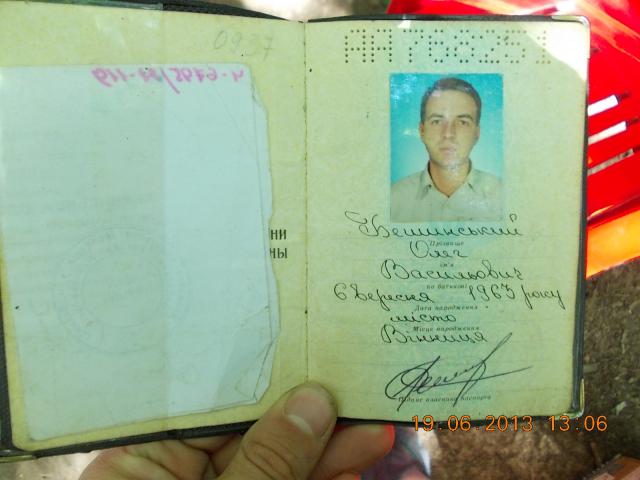 0937
АА758251
НИ
НЫ
Прізвище
Олег
Ім'я
Васильович
по батькові
6 вересня 1963 року
Дата народження
місто
Місце народження
Вінниця
Підпис власника паспорта
19.06.2013 13:06